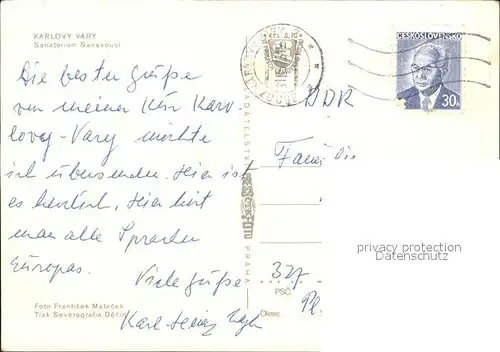 KARLOVY VARY
Sanatorium Sanssouci
Die besten Grüße
von meiner Kur Karo
lovy-Vary möchte
ich übersenden. Hier ist
es herrlich, hier hört
man alle Sprachen
Europas.
Viele Grüße
Karl Heinz
Foto František Maleček
Tisk Severografia Děčín
ČESKOSLOVENSKO
30
DDR
Fam.
327
PSČ
Okres:
PRAHA
privacy protection
Datenschutz